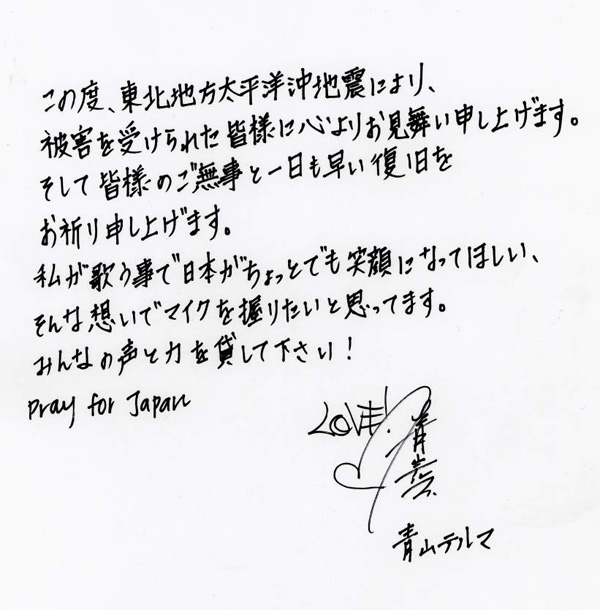 この度、東北地方太平洋沖地震により、
被害を受けられた皆様に心よりお見舞い申し上げます。
そして皆様のご無事と一日も早い復旧を
お祈り申し上げます。
私が歌う事で日本がちょっとでも笑顔になってほしい、
そんな想いでマイクを握りたいと思ってます。
みんなの声と力を貸して下さい！
Pray for Japan
LOVE!
青山テルマ